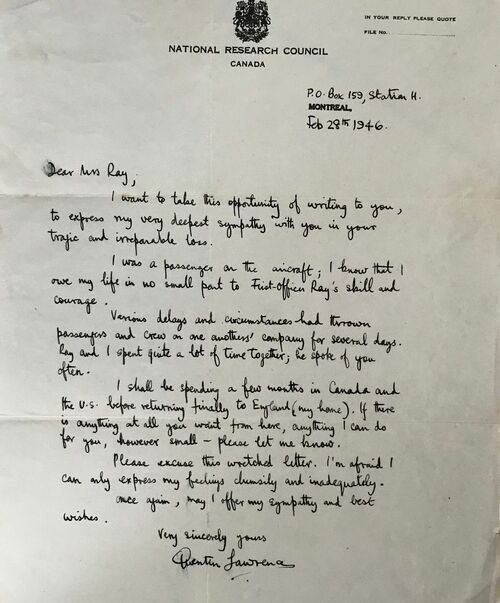 IN YOUR REPLY PLEASE QUOTE
FILE No.
NATIONAL RESEARCH COUNCIL
CANADA
P.O. Box 159, Station H.
MONTREAL,
Feb 28th 1946.
Dear Mrs Ray,
I want to take this opportunity of writing to you,
to express my very deepest sympathy with you in your
tragic and irreparable loss.
I was a passenger on the aircraft; I know that I
owe my life in no small part to First-Officer Ray's skill and
courage.
Various delays and circumstances had thrown
passengers and crew on one anothers' company for several days.
Ray and I spent quite a lot of time together; he spoke of you
often.
I shall be spending a few months in Canada and
the U.S. before returning finally to England (my home). If there
is anything at all you want from here, anything I can do
for you, however small - please let me know.
Please excuse this wretched letter. I'm afraid I
can only express my feelings clumsily and inadequately.
Once again, may I offer my sympathy and best
wishes.
Very sincerely yours
Quentin Lawrence